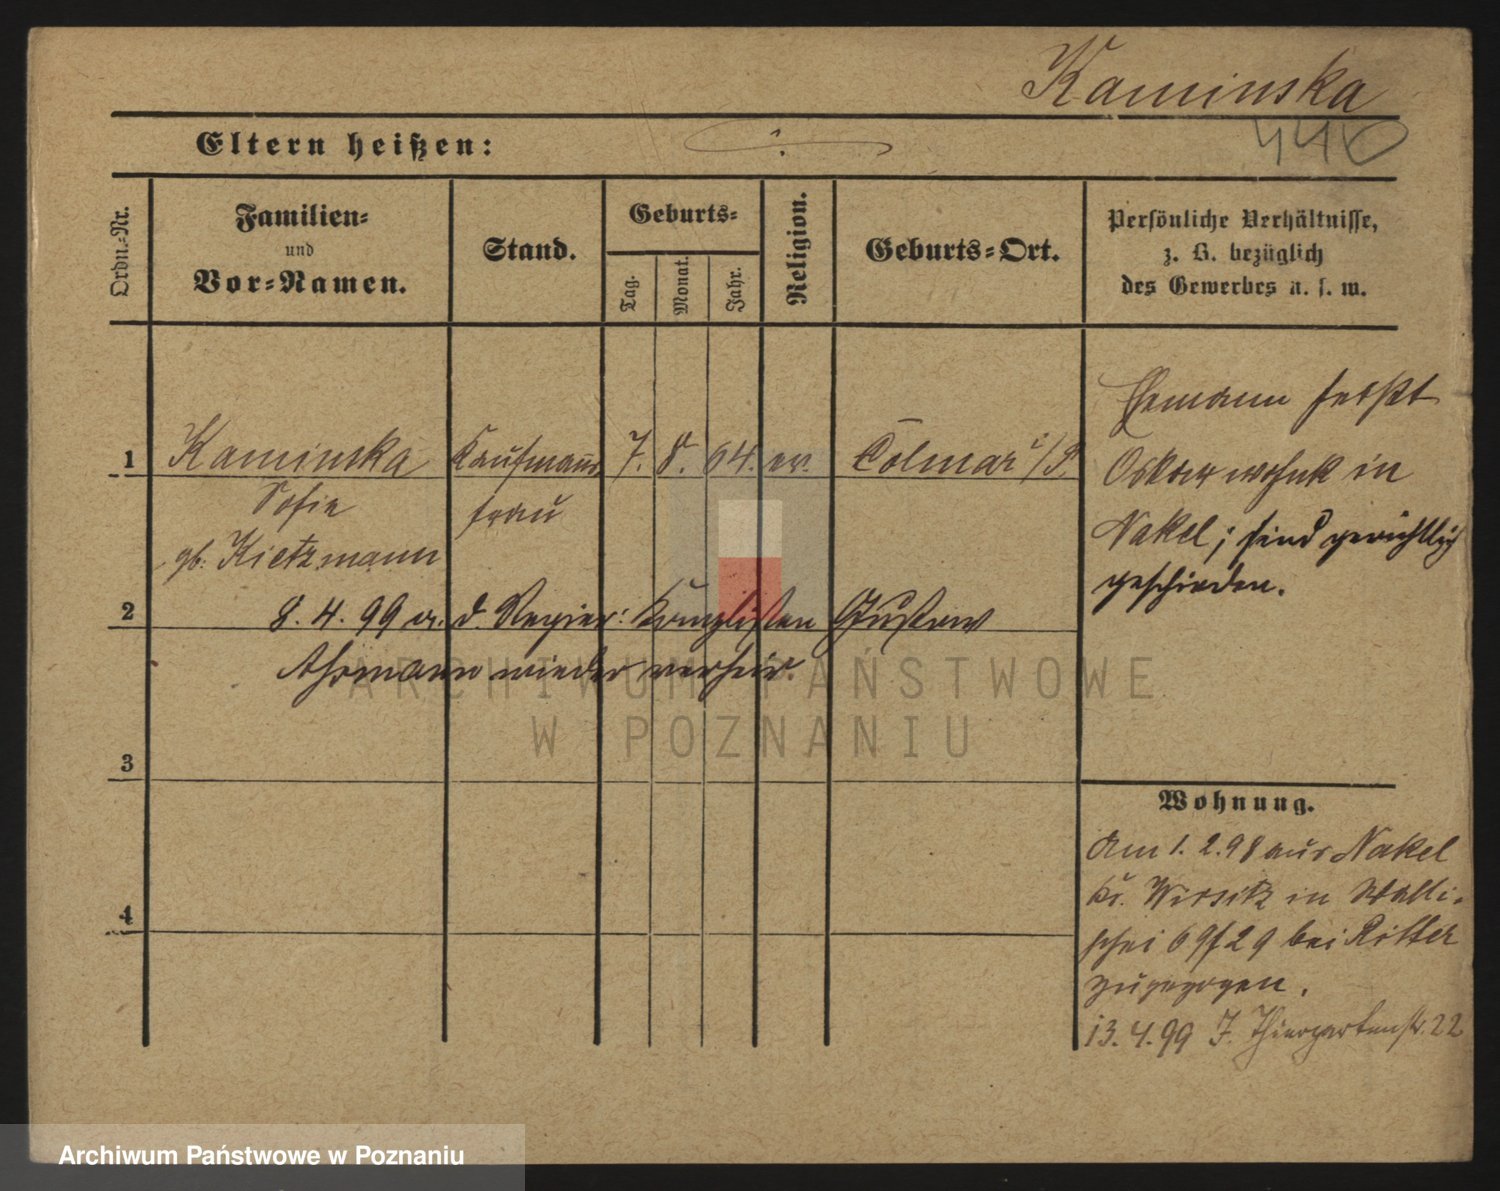 Kaminska
440
Eltern heißen:
Ordn.-Nr.
Familien-
und
Vor-Namen.
Stand.
Geburts-
Tag.
Monat.
Jahr.
Religion.
Geburts-Ort.
Persönliche Verhältnisse,
z. B. bezüglich
des Gewerbes u. s. w.
1 Kaminska Kaufmanns 7. 8. 64. ev. Colmar i/P.
Sofie frau
gb. Kietzmann
2 8. 4. 99 a. d. Regier: Kanzlisten Gustav
wieder verheir.
3
4
Ehemann heißt
Oskar wohnt in
Nakel; sind gerichtlich
geschieden.
Wohnung.
Am 1. 2. 98 aus Nakel
Kr. Wirsitz in Walli-
schei 69/29 bei Ritter
zugezogen.
13. 4. 99 J. Thiergartenstr. 22
ARCHIWUM PAŃSTWOWE
W POZNANIU
Archiwum Państwowe w Poznaniu